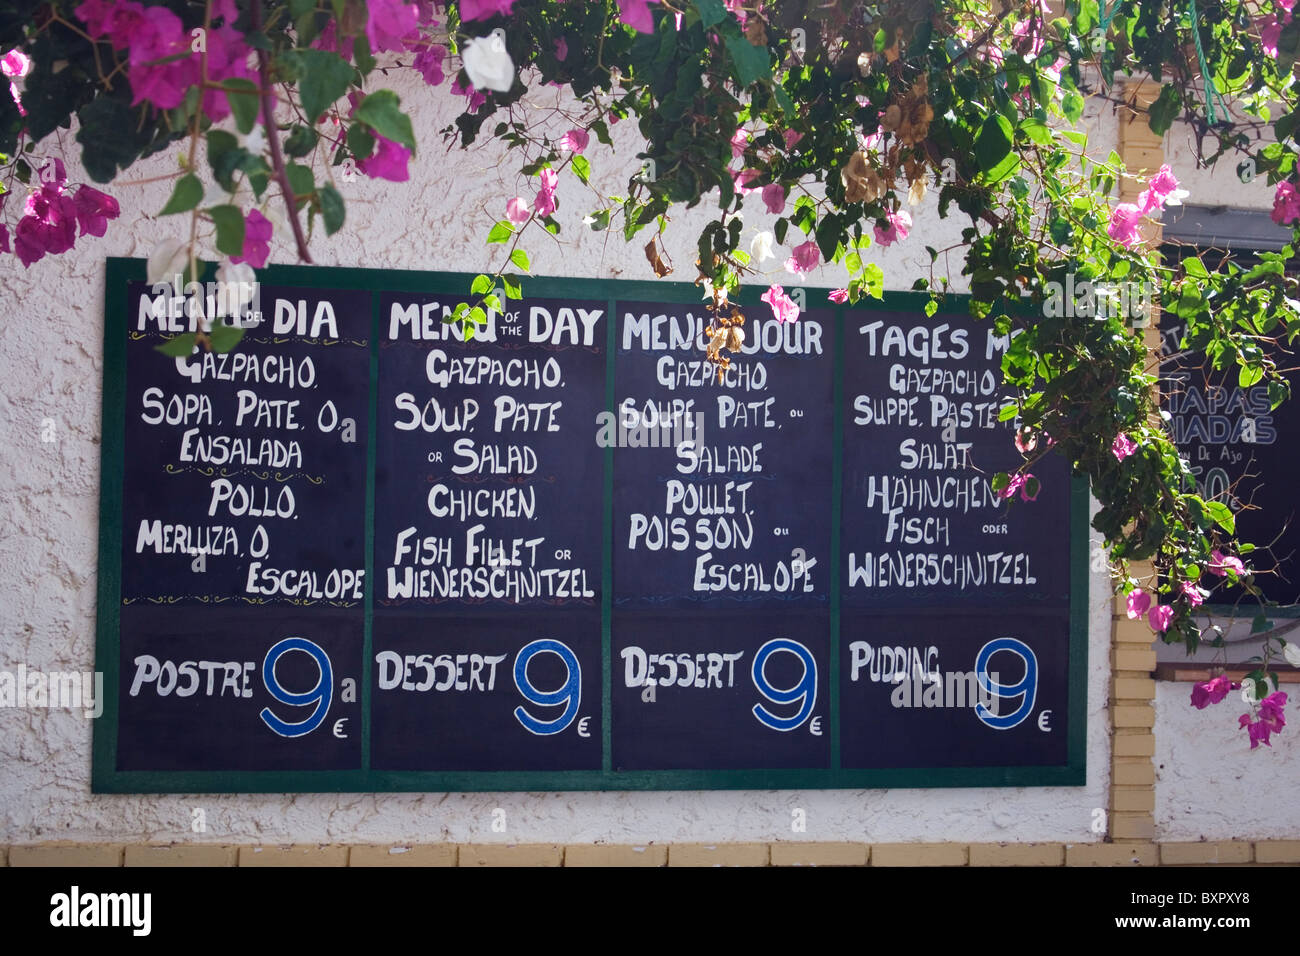 MENU DEL DIA
GAZPACHO,
SOPA, PATE, O,
ENSALADA
POLLO,
MERLUZA, O,
ESCALOPE
POSTRE 9 €
MENU OF THE DAY
GAZPACHO,
SOUP, PATE
OR SALAD
CHICKEN,
FISH FILLET OR
WIENERSCHNITZEL
DESSERT 9 €
MENU JOUR
GAZPACHO,
SOUPE, PATE, OU
SALADE
POULET,
POISSON OU
ESCALOPE
DESSERT 9 €
TAGES
GAZPACHO,
SUPPE, PASTETE
SALAT
HÄHNCHEN
FISCH ODER
WIENERSCHNITZEL
PUDDING 9 €
TAPAS
De Ajo
alamy
Image ID: BXPXY8
www.alamy.com